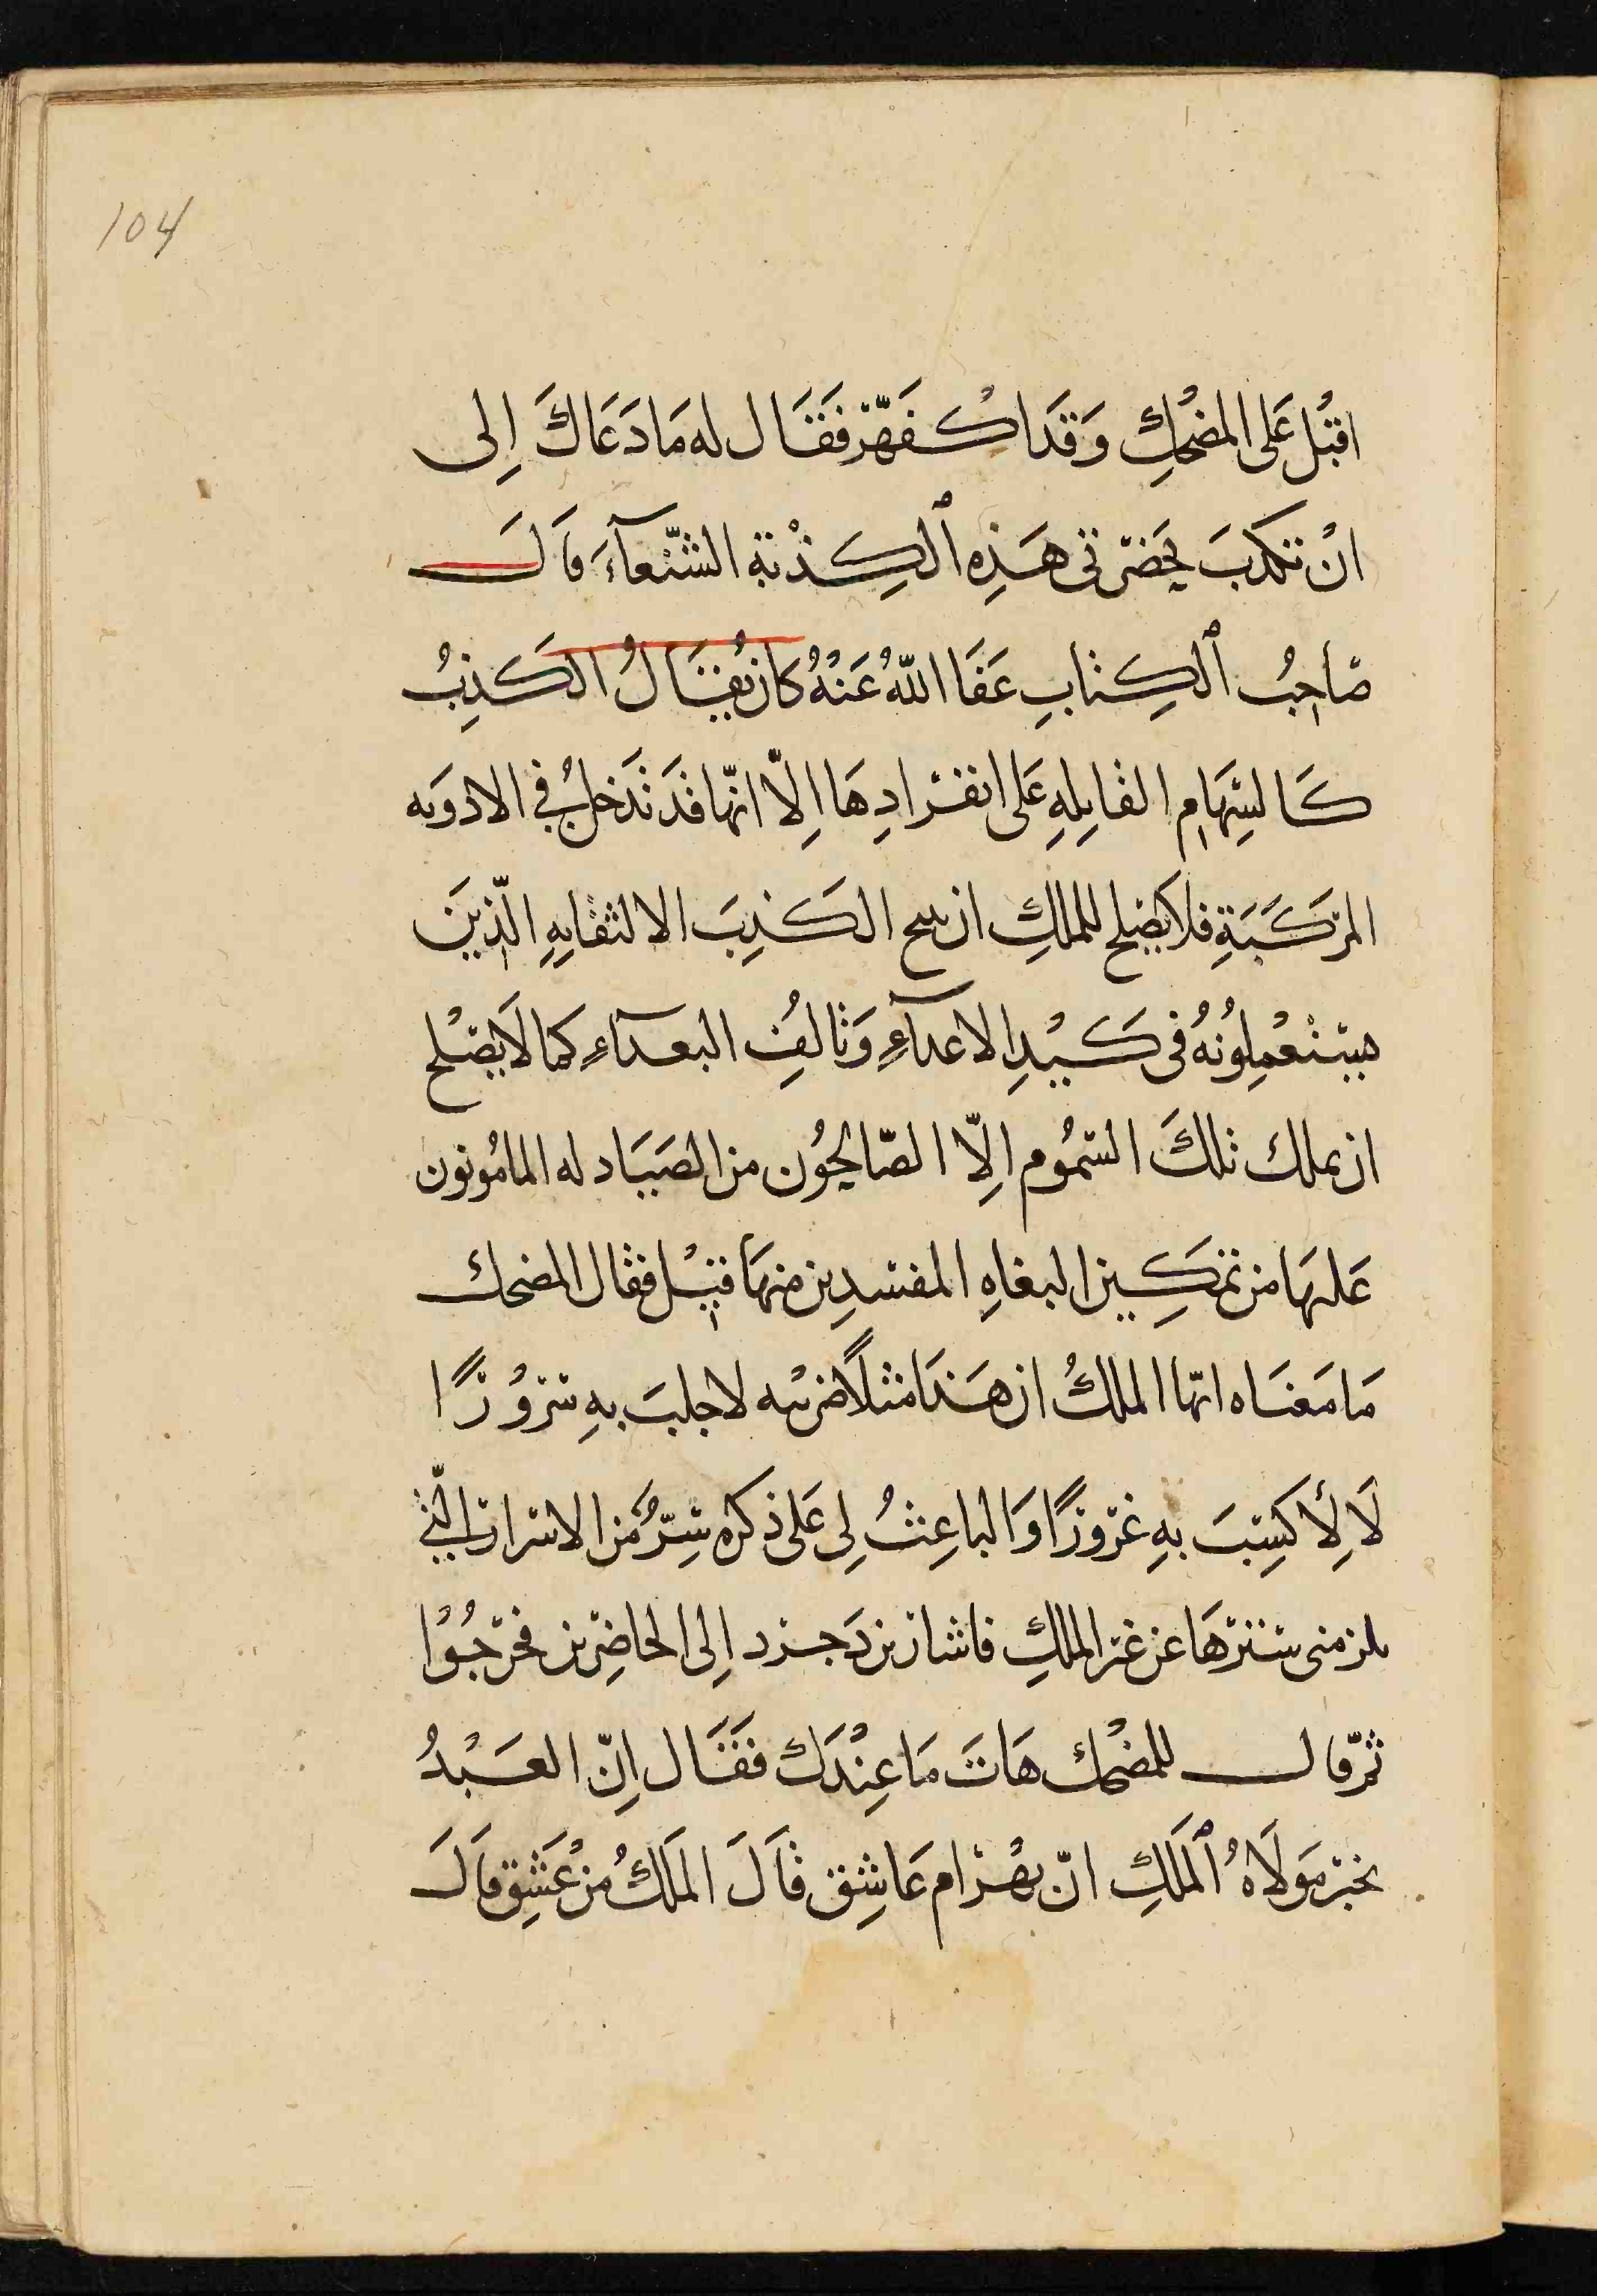 104
اقْبَل عَلى المضْحِكِ وَقدَ اكْفَهَّر فَقَال له مَا دَعَاكَ اِلى
انْ تكذبَ بحَضرتى هَذِه ٱلكِذْبَةِ الشّنْعآءَ قاَلَ
صَاحِبُ ٱلكِتابِ عَفَا اللّهُ عَنْهُ كَانَ يُقَالُ الكَذِبُ
كَالسِّهَامِ القاتِلهِ عَلى انفرَادِهَا اِلّا انّهَا قَد تَدخلُ في الادوَيه
المرَكَّبَةِ فلا يَصْلح للملكِ ان يبيح الكَذِبَ الا لثقاتِهِ الّذِينَ
يسْتَعْمِلوُنَهُ فى كَيْدِ الاعدآءِ وَتالفِ البعدآءِ كما لَا يَصْلح
ان يملك تلكَ السّمُوم اِلّا الصّالحُون من الصَيَادله المامُونون
عَليهَا من تمكِين البغاهِ المفسدِين منهَا قيْل فقال المضحك
مَا مَعْنَاه ايّها الملكُ ان هَذَا مثلًا ضربته لاجلبَ بهِ سُرُوْرًا
لَا لِأكسِبَ بهِ غرورًا وَالباعِثُ لى عَلى ذكره سِرٌّ من الاسرار الّتي
يلزمنى سَترهَا عن غير الملكِ فاشار يزدَجرد اِلى الحاضِرين فخرَجُوْا
ثمّ قال للمضْحك هَاتَ مَا عِنْدَكَ فقَال اِنّ العَبْدُ
يخبر مَولَاهُ ٱلمَلكِ انّ بهْرَام عَاشِق قاَلَ المَلكُ مِن عُشِق قاَلَ